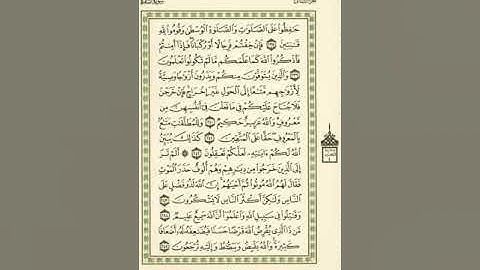 حَٰفِظُوا۟ عَلَى ٱلصَّلَوَٰتِ وَٱلصَّلَوٰةِ ٱلْوُسْطَىٰ وَقُومُوا۟ لِلَّهِ
قَٰنِتِينَ ٢٣٨ فَإِنْ خِفْتُمْ فَرِجَالًا أَوْ رُكْبَانًا فَإِذَآ أَمِنتُمْ
فَٱذْكُرُوا۟ ٱللَّهَ كَمَا عَلَّمَكُم مَّا لَمْ تَكُونُوا۟ تَعْلَمُونَ
٢٣٩ وَٱلَّذِينَ يُتَوَفَّوْنَ مِنكُمْ وَيَذَرُونَ أَزْوَٰجًا وَصِيَّةً
لِّأَزْوَٰجِهِم مَّتَٰعًا إِلَى ٱلْحَوْلِ غَيْرَ إِخْرَاجٍ فَإِنْ خَرَجْنَ
فَلَا جُنَاحَ عَلَيْكُمْ فِى مَا فَعَلْنَ فِىٓ أَنفُسِهِنَّ مِن
مَّعْرُوفٍ وَٱللَّهُ عَزِيزٌ حَكِيمٌ ٢٤٠ وَلِلْمُطَلَّقَٰتِ مَتَٰعٌۢ
بِٱلْمَعْرُوفِ حَقًّا عَلَى ٱلْمُتَّقِينَ ٢٤١ كَذَٰلِكَ يُبَيِّنُ
ٱللَّهُ لَكُمْ ءَايَٰتِهِۦ لَعَلَّكُمْ تَعْقِلُونَ ٢٤٢ ۞ أَلَمْ تَرَ
إِلَى ٱلَّذِينَ خَرَجُوا۟ مِن دِيَٰرِهِمْ وَهُمْ أُلُوفٌ حَذَرَ ٱلْمَوْتِ
فَقَالَ لَهُمُ ٱللَّهُ مُوتُوا۟ ثُمَّ أَحْيَٰهُمْ إِنَّ ٱللَّهَ لَذُو فَضْلٍ عَلَى
ٱلنَّاسِ وَلَٰكِنَّ أَكْثَرَ ٱلنَّاسِ لَا يَشْكُرُونَ ٢٤٣
وَقَٰتِلُوا۟ فِى سَبِيلِ ٱللَّهِ وَٱعْلَمُوٓا۟ أَنَّ ٱللَّهَ سَمِيعٌ عَلِيمٌ ٢٤٤
مَّن ذَا ٱلَّذِى يُقْرِضُ ٱللَّهَ قَرْضًا حَسَنًا فَيُضَٰعِفَهُۥ لَهُۥٓ أَضْعَافًا
كَثِيرَةً وَٱللَّهُ يَقْبِضُ وَيَبْصُۜطُ وَإِلَيْهِ تُرْجَعُونَ ٢٤٥